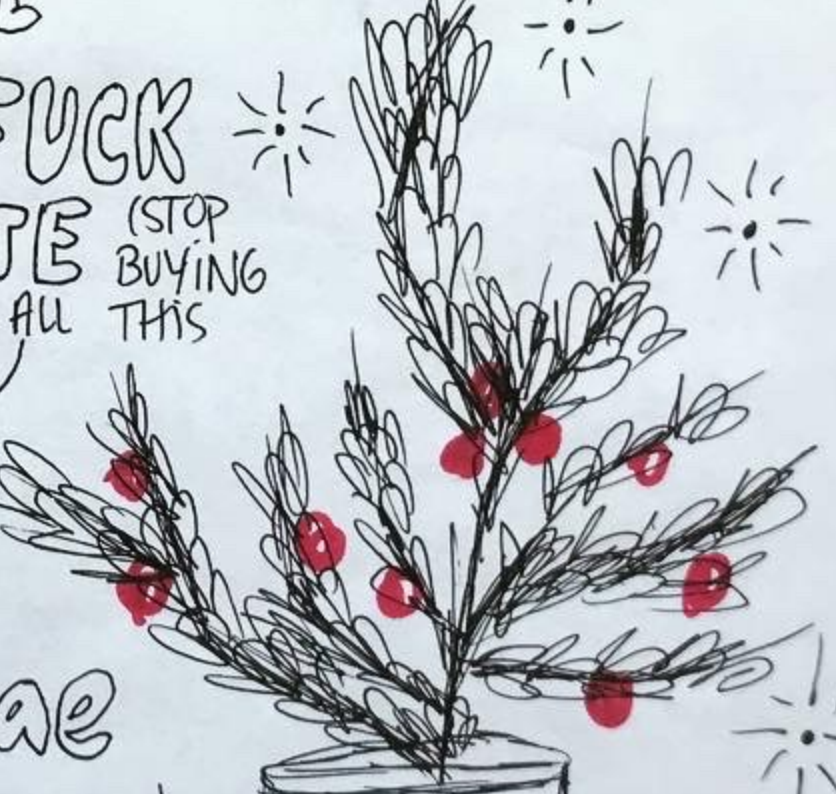 FUCK
TE (STOP
BUYING
ALL THIS
ae